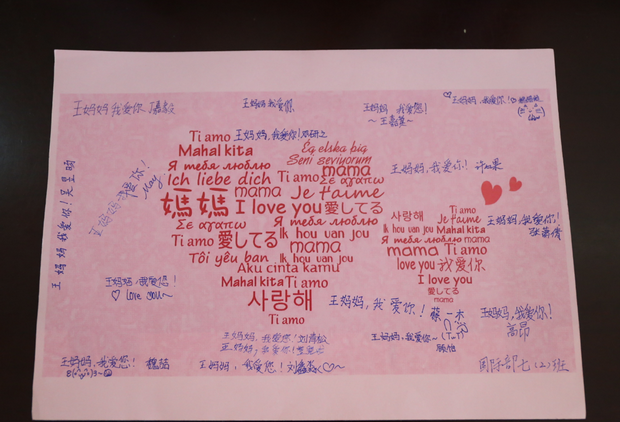 王妈妈我爱你
王妈妈我爱你
王妈妈 我爱您!
王妈妈,我爱您!
Ti amo
王妈妈,我爱你!
Mahal kita
Я тебя люблю
Ich liebe dich
Ti amo
Ég elska þig
Seni seviyorum
mama
Σε αγαπω
mama
Je t'aime
媽媽
I love you
愛してる
Σε αγαπω
Я тебя люблю
Ti amo
愛してる
Ik hou van jou
mama
Tôi yêu bạn
Aku cinta kamu
Mahal kita
Ti amo
사랑해
Ti amo
王妈妈,我爱你! 许
Ti amo
사랑해
Je t'aime
Ik hou van jou
Mahal kita
Я тебя люблю
mama
mama
Ti amo
love you
我爱你
I love you
愛してる
mama
王妈妈,我爱你!
王妈妈我爱你!吴昱
王妈妈我爱你!
May
王妈妈,我爱您!
love you~
王妈妈,我爱你! 蔡一木
王妈妈,我爱你!
高昂
王妈妈,我爱您!刘
王妈妈,我爱您!
王妈妈,我爱你~
顾怡
王妈妈,我爱您! 魏
王妈妈,我爱您!刘
国际部七(2)班